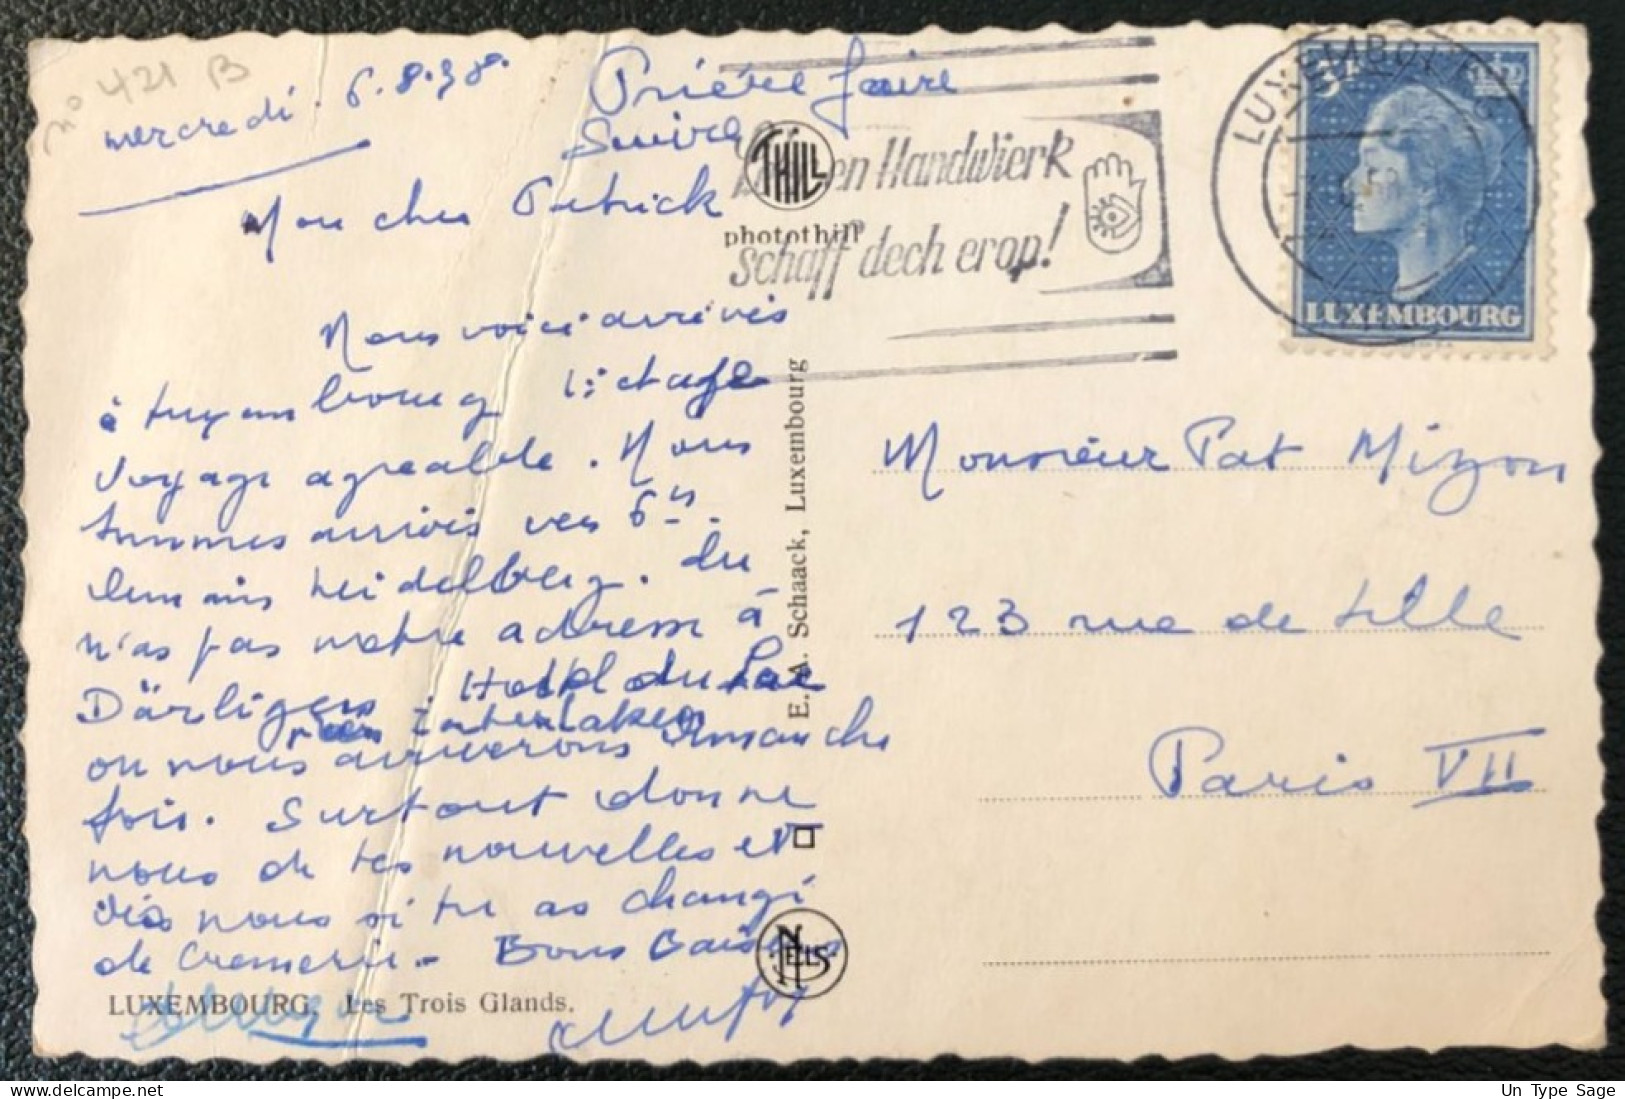 no 421 B
mercredi 6.8.
Prière faire
Suivre
Mon cher Patrick
Nous voici arrivés
à Luxembourg
voyage agreable. Nous
sommes arrivés vers 6 hs.
demain Heidelberg. Tu
n'as pas notre adresse à
Därligen, Hotel du Lac
près Interlaken
ou nous arriverons dimanche
soir. Surtout donne
nous de tes nouvelles et
dis nous si tu as changé
de Cremerie. Bons Baisers
LUXEMBOURG. Les Trois Glands.
THILL
photothill
E. A. Schaack, Luxembourg
NELS
en Handwierk
schaff dech erop!
LUXEMBOURG
3F
LUXEMBOURG
Monsieur Pat Mizon
123 rue de Lille
Paris VII
Un Type Sage